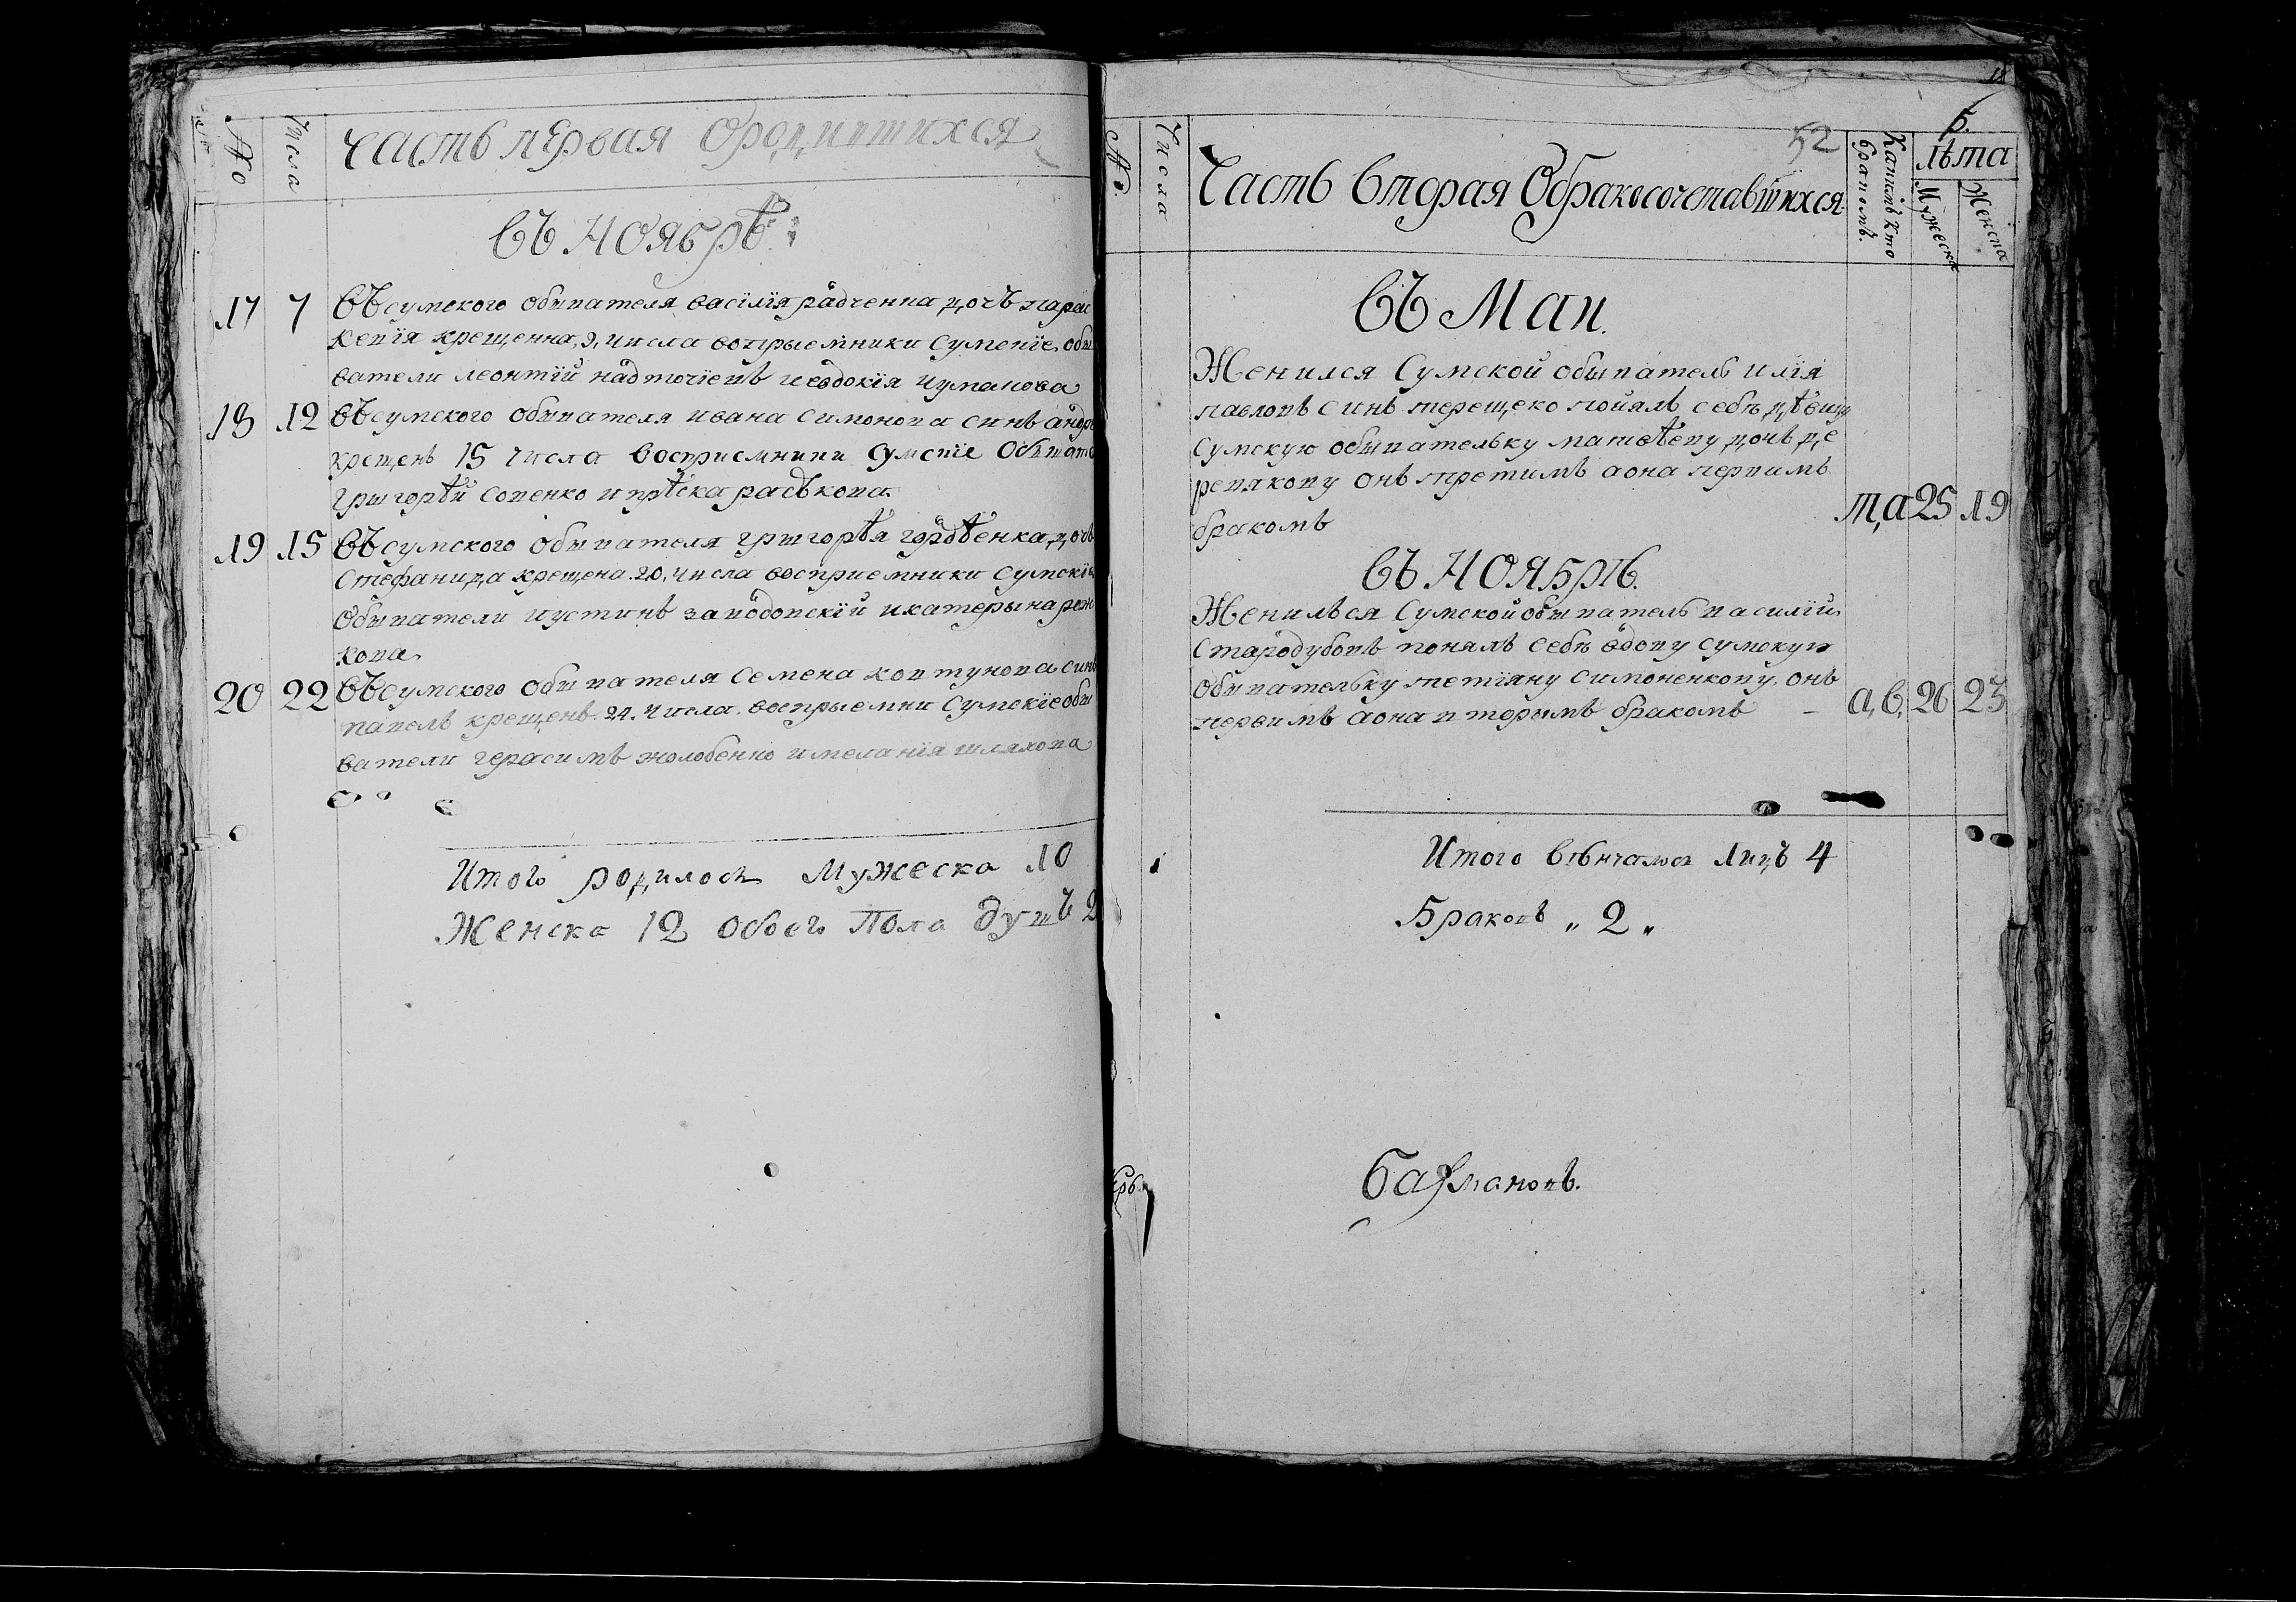 №
Числа
Часть первая Ородившихся
въ Ноябрѣ
17 7 Въ сумского обывателя васілія радченка дочь парас
кевія крещенна 9, числа восприемники Сумскіе, обы
ватели леонтій надточіевъ и евдокія шуманова
18 12 Въ сумского обывателя ивана Симонова синъ андре
крещенъ 15 Числа восприемники Сумскіе Обывате
григорѣй Сопенко и
19 15 Въ сумского обывателя григорѣя дочь
Стефанида крещена. 20. Числа восприемники Сумскіе
Обыватели иустинъ заводовскій и катерына реж
кова
20 22 Въ сумского обывателя Семена ковтунова синъ
павелъ крещенъ. 24. Числа. восприемни Сумскіе обы
ватели герасимъ жолобенко и меланія шляхова
Итого родилось Мужеска 10
Женска 12 обоего Пола душъ 2
52
№
Числа
Часть вторая Обракосочетавшихся
Которимъ кто
бракомъ.
Лѣта
Мужеска
Женска
въ Маи.
Женился Сумской обыватель илія
павловъ синъ терещеко пойялъ себѣ дѣвицу
Сумскую обывательку матвѣеву дочь де
ревякову онъ третимъ а она первимъ
бракомъ
т,а 25 19
въ Ноябрѣ.
Женилься Сумской обыватель василій
Стародубовъ понялъ себѣ вдову сумскую
Обывательку тетіяну Симоненкову. онъ
первимъ а она вторымъ бракомъ – а, в, 26 23
Итого вѣнчалось Лицъ 4
Браковъ „ 2 „